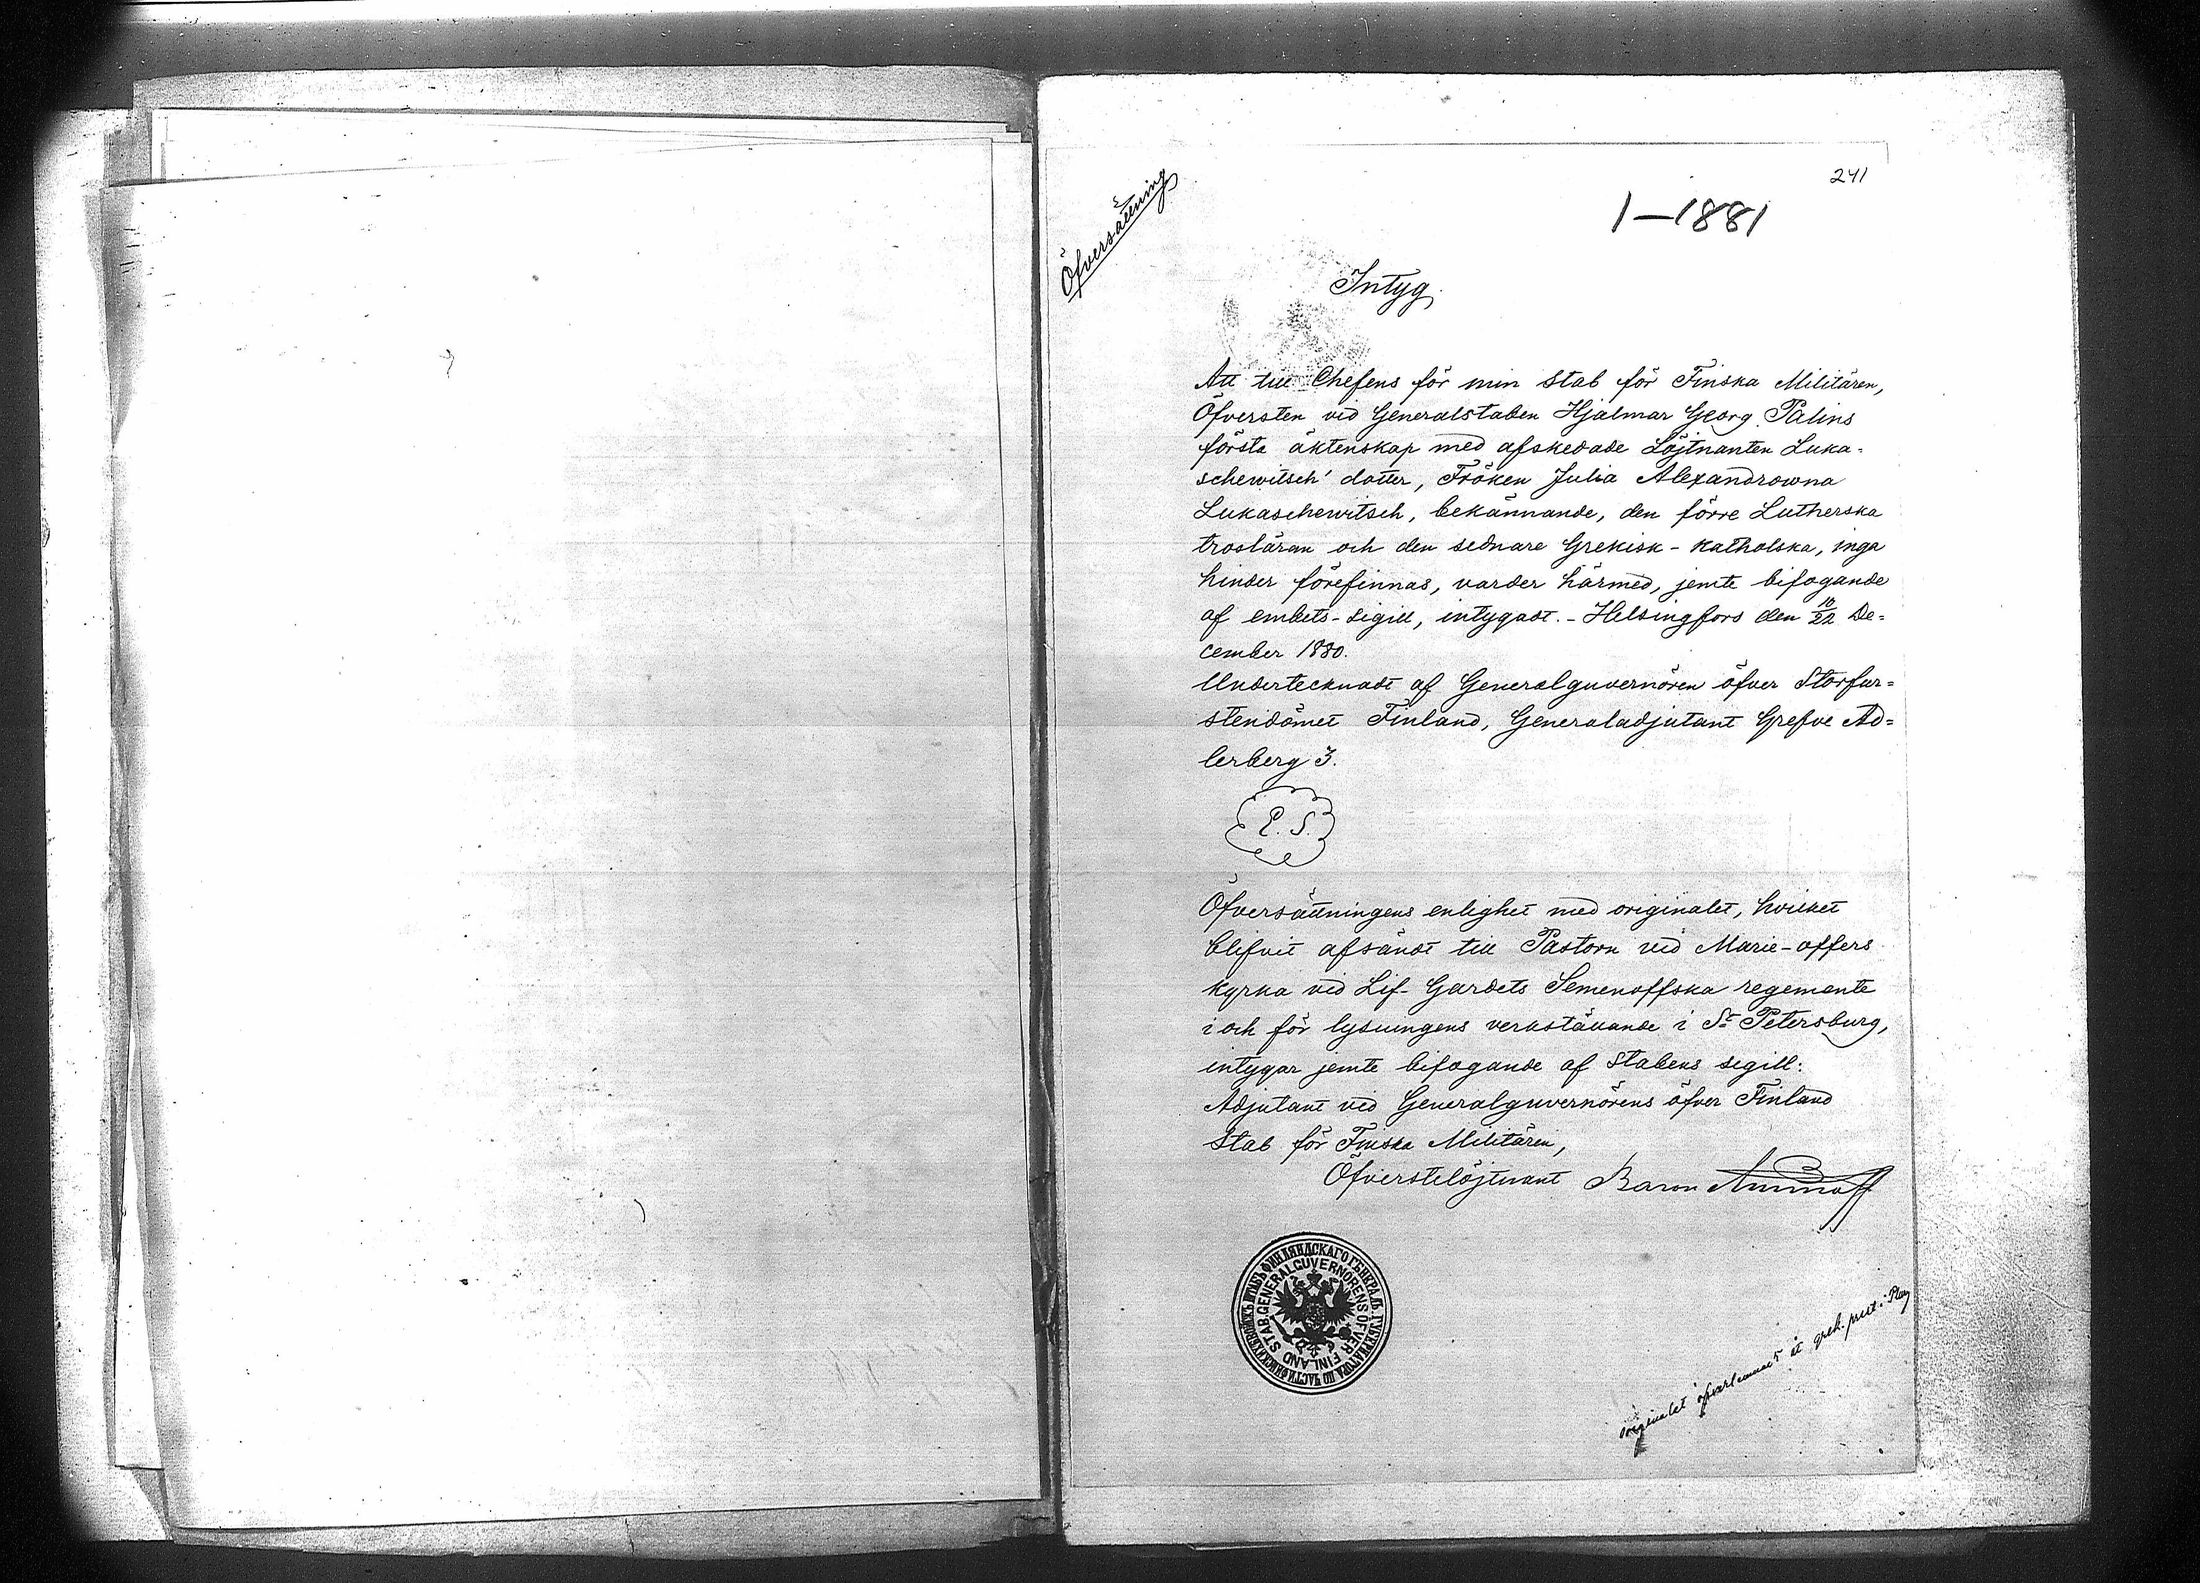 241
1-1881
Öfversättning
Intyg.
Att till Chefens för min Stab för Finska Militären,
Öfversten vid Generalstaben Hjalmar Georg Palins
första äktenskap med afskedade Löjtnanten Luka-
schewitsch' dotter, Fröken Julia Alexandrowna
Lukaschewitsch, bekännande, den förre Lutherska
trosläran och den sednare Grekisk-katholska, inga
hinder förefinnas, varder härmed, jemte bifogande
af embets-sigill, intygadt. - Helsingfors den 10/22 De-
cember 1880.
Undertecknadt af Generalguvernören öfver Storfur-
stendömet Finland, Generaladjutant Grefve Ad-
lerberg 3.
Öfversättningens enlighet med originalet, hvilket
blifvit afsändt till Pastorn vid Marie-offers
kyrka vid Lif-Gardets Semenoffska regemente
i och för lysningens verkställande i St Petersburg,
intygar jemte bifogande af Stabens sigill:
Adjutant vid Generalguvernörens öfver Finland
Stab för Finska Militären,
Öfverstelöjtnant Baron Aminoff
STAB GENERALGUVERNORENS OFVER FINLAND
originalet öfverlemnadt åt grek.